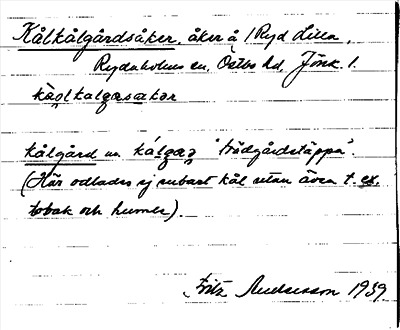 Kålkålgårdsåker, åker å 1 Ryd Lilla,
Rydaholms sn, Östbo hd, Jönk. l.
kålgård un kálgaɚ "trädgårdstäppa".
(Här odlades ej enbart kål utan även t. ex.
tobak och humle).
Fritz Andersson 1939